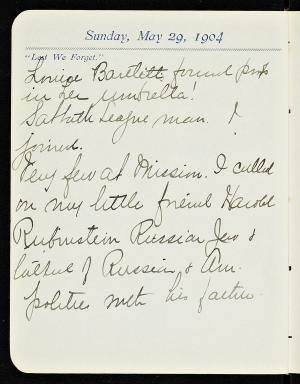 Sunday, May 29, 1904
"Lest We Forget."
Louise Bartlett found pins
in her umbrella!
Sabbath League man. I
joined.
Very few at Mission. I called
on my little friend Harold
Rubinstein Russian Jew &
talked of Russian & Am.
politics with his father.